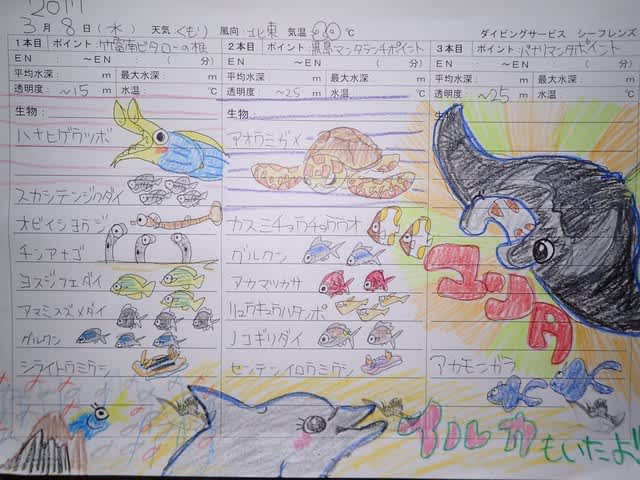 2017
3月8日(水) 天気 くもり 風向 北東 気温 °C
ダイビングサービス シーフレンズ
1本目 ポイント 竹富南ビタローの根
2本目 ポイント 黒島マンタランチポイント
3本目 ポイント パナリマンタポイント
EN : ～EN : ( 分)
EN : ～EN : ( 分)
EN : ～EN : ( 分)
平均水深 m 最大水深 m
平均水深 m 最大水深 m
平均水深 m 最大水深 m
透明度 ~15 m 水温 °C
透明度 ~25 m 水温 °C
透明度 ~25 m 水温 °C
生物:
ハナヒゲウツボ
スカシテンジクダイ
オビイシヨウジ
チンアナゴ
ヨスジフエダイ
アマミスズメダイ
グルクン
シライトウミウシ
生物:
アオウミガメ
カスミチョウチョウウオ
グルクン
アカマツカサ
リュウキュウハタンポ
ノコギリダイ
センテンイロウミウシ
生物
マンタ
アカモンガラ
イルカもいたよ!!